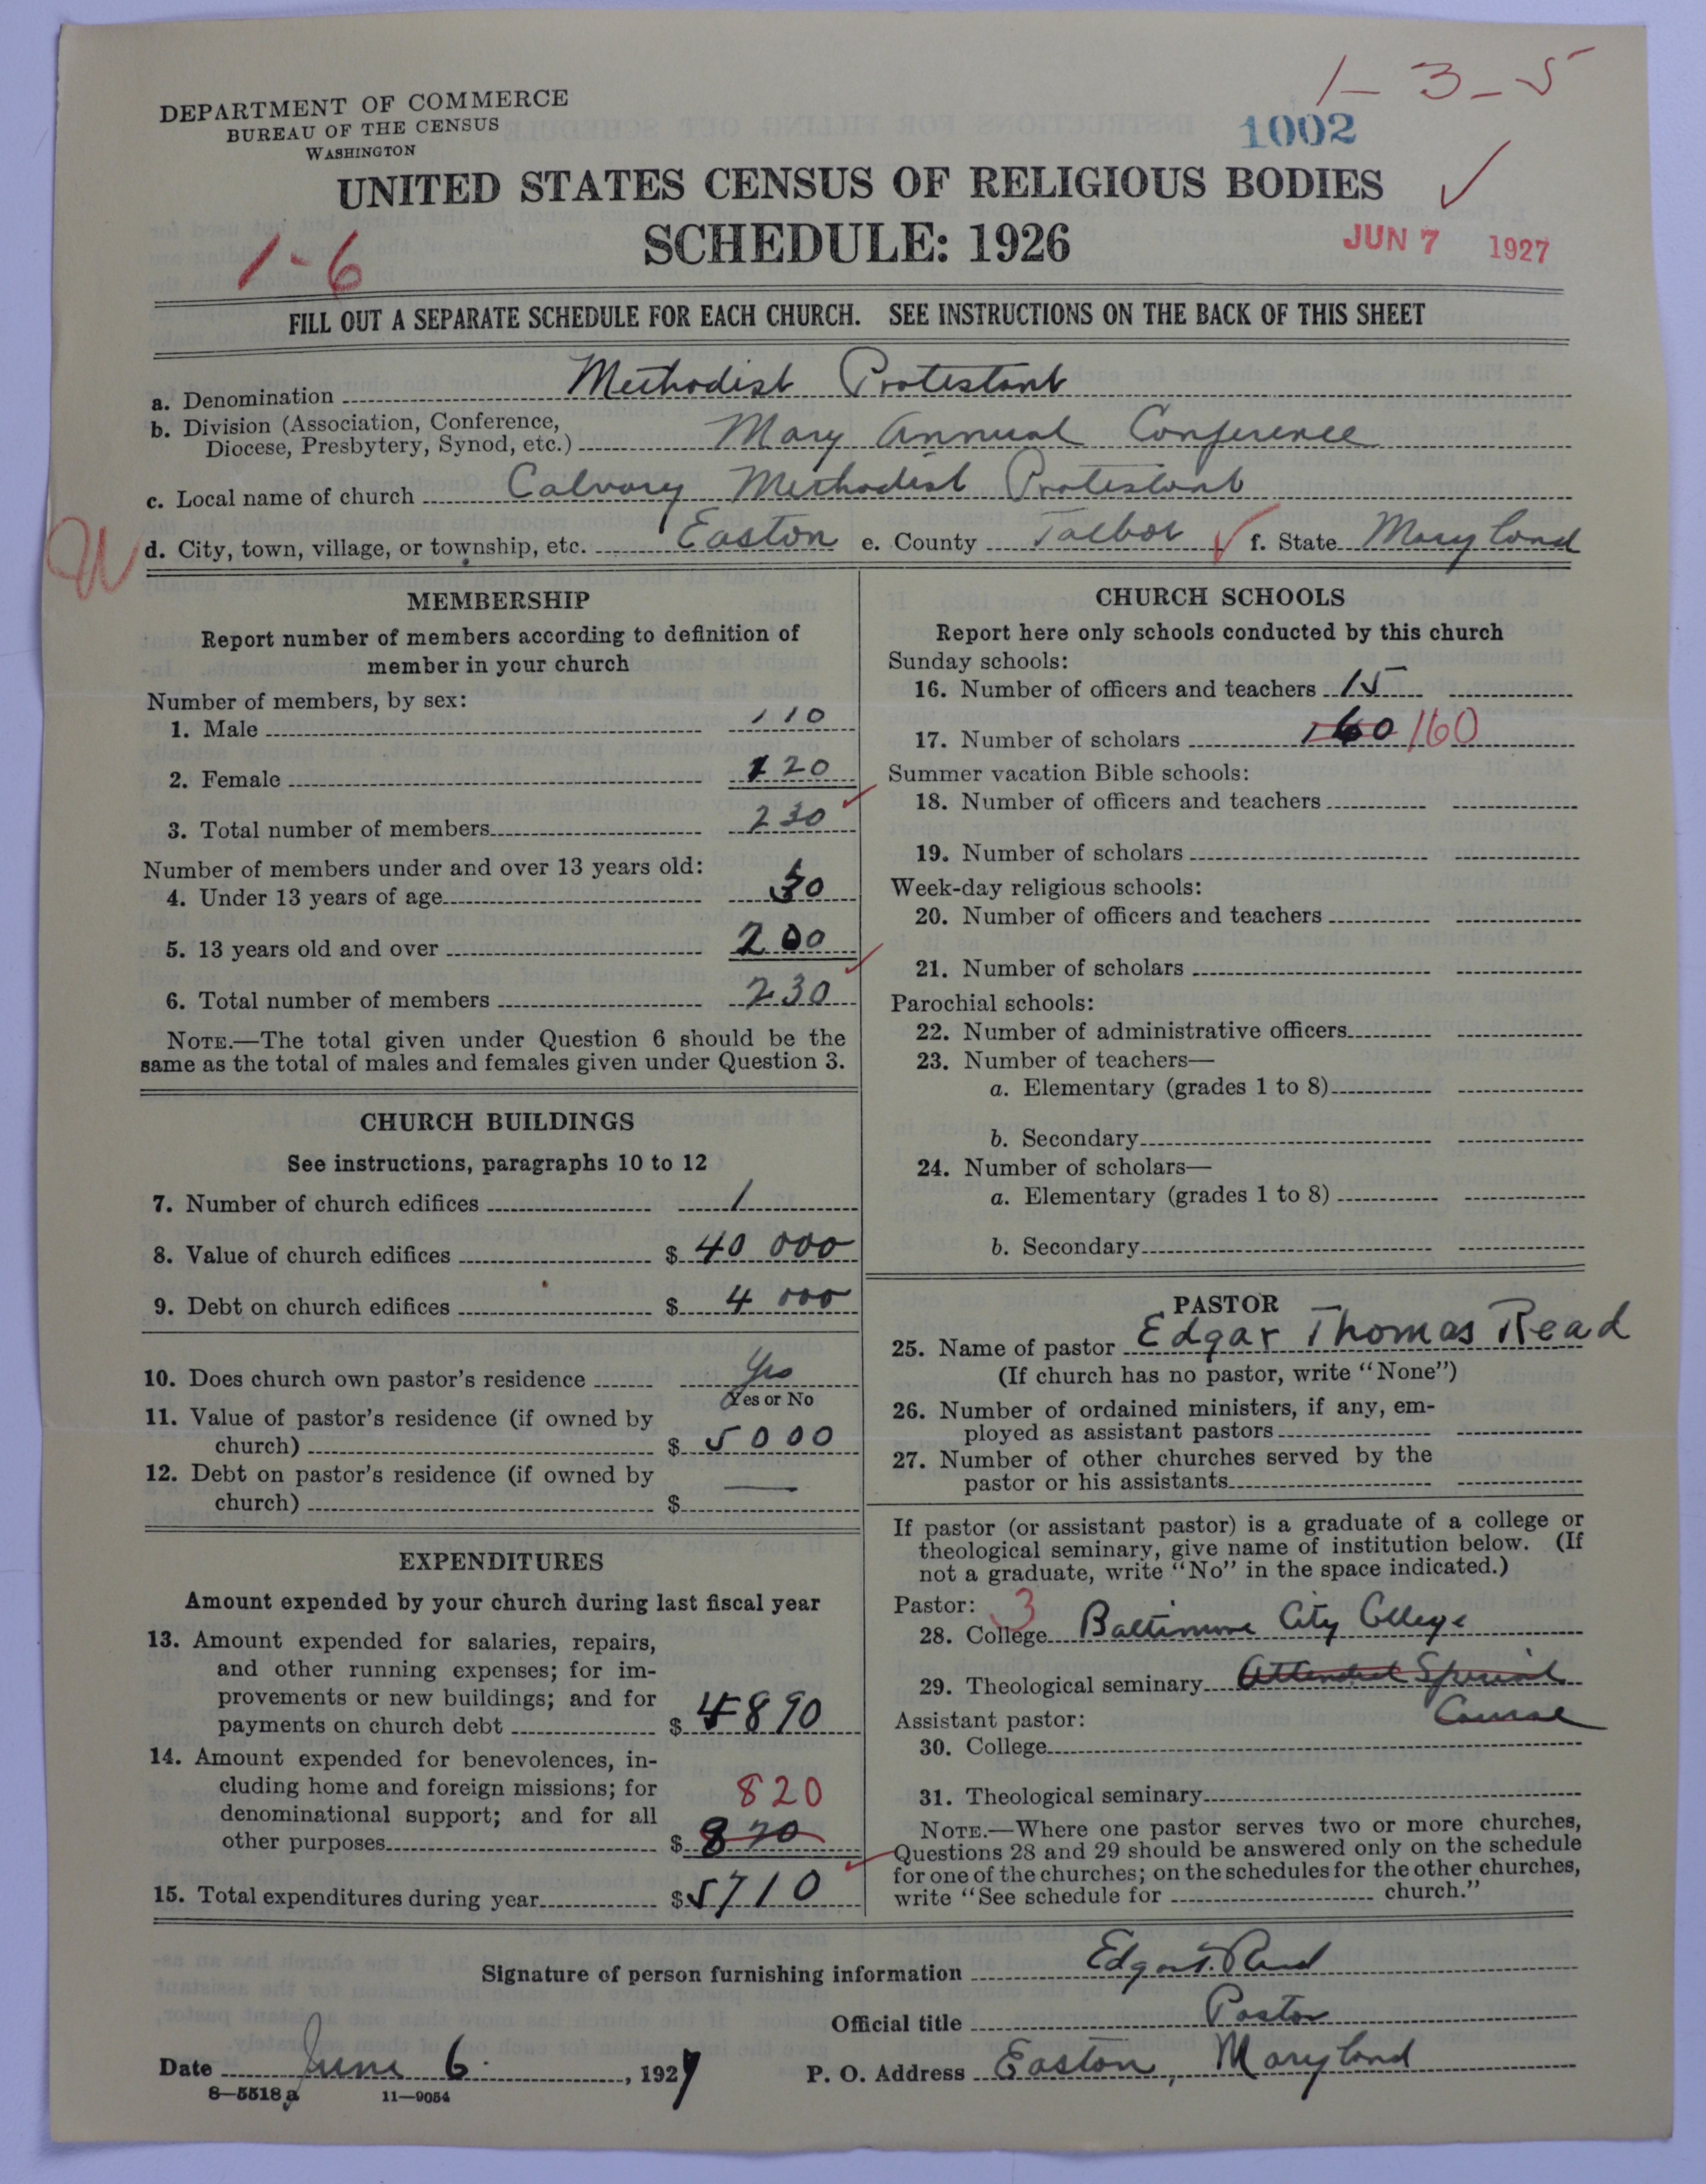 1-3-5
DEPARTMENT OF COMMERCE
BUREAU OF THE CENSUS
WASHINGTON
1002
UNITED STATES CENSUS OF RELIGIOUS BODIES
SCHEDULE: 1926
JUN 7 1927
1-6
FILL OUT A SEPARATE SCHEDULE FOR EACH CHURCH. SEE INSTRUCTIONS ON THE BACK OF THIS SHEET
a. Denomination Methodist Protestant
b. Division (Association, Conference,
Diocese, Presbytery, Synod, etc.) Mary Annual Conference
c. Local name of church Calvary Methodist Protestant
d. City, town, village, or township, etc. Easton e. County Talbot f. State Maryland
MEMBERSHIP
Report number of members according to definition of
member in your church
Number of members, by sex:
1. Male 110
2. Female 120
3. Total number of members 230
Number of members under and over 13 years old:
4. Under 13 years of age 30
5. 13 years old and over 200
6. Total number of members 230
NOTE.—The total given under Question 6 should be the
same as the total of males and females given under Question 3.
CHURCH BUILDINGS
See instructions, paragraphs 10 to 12
7. Number of church edifices 1
8. Value of church edifices $ 40 000
9. Debt on church edifices $ 4 000
10. Does church own pastor's residence Yes
Yes or No
11. Value of pastor's residence (if owned by
church) $ 5000
12. Debt on pastor's residence (if owned by
church) $ —
EXPENDITURES
Amount expended by your church during last fiscal year
13. Amount expended for salaries, repairs,
and other running expenses; for im-
provements or new buildings; and for
payments on church debt $ 4890
14. Amount expended for benevolences, in-
cluding home and foreign missions; for
820
denominational support; and for all
other purposes $ 820
15. Total expenditures during year $ 5710
CHURCH SCHOOLS
Report here only schools conducted by this church
Sunday schools:
16. Number of officers and teachers 15
17. Number of scholars 160 160
Summer vacation Bible schools:
18. Number of officers and teachers
19. Number of scholars
Week-day religious schools:
20. Number of officers and teachers
21. Number of scholars
Parochial schools:
22. Number of administrative officers
23. Number of teachers—
a. Elementary (grades 1 to 8)
b. Secondary
24. Number of scholars—
a. Elementary (grades 1 to 8)
b. Secondary
PASTOR
25. Name of pastor Edgar Thomas Read
(If church has no pastor, write "None")
26. Number of ordained ministers, if any, em-
ployed as assistant pastors
27. Number of other churches served by the
pastor or his assistants
If pastor (or assistant pastor) is a graduate of a college or
theological seminary, give name of institution below. (If
not a graduate, write "No" in the space indicated.)
Pastor: 3
28. College Baltimore City College
29. Theological seminary Attended Special
Course
Assistant pastor:
30. College
31. Theological seminary
NOTE.—Where one pastor serves two or more churches,
Questions 28 and 29 should be answered only on the schedule
for one of the churches; on the schedules for the other churches,
write "See schedule for church."
Signature of person furnishing information Edgar T. Read
Official title Pastor
Date June 6, 1927 P. O. Address Easton, Maryland
8—5518a 11—9054